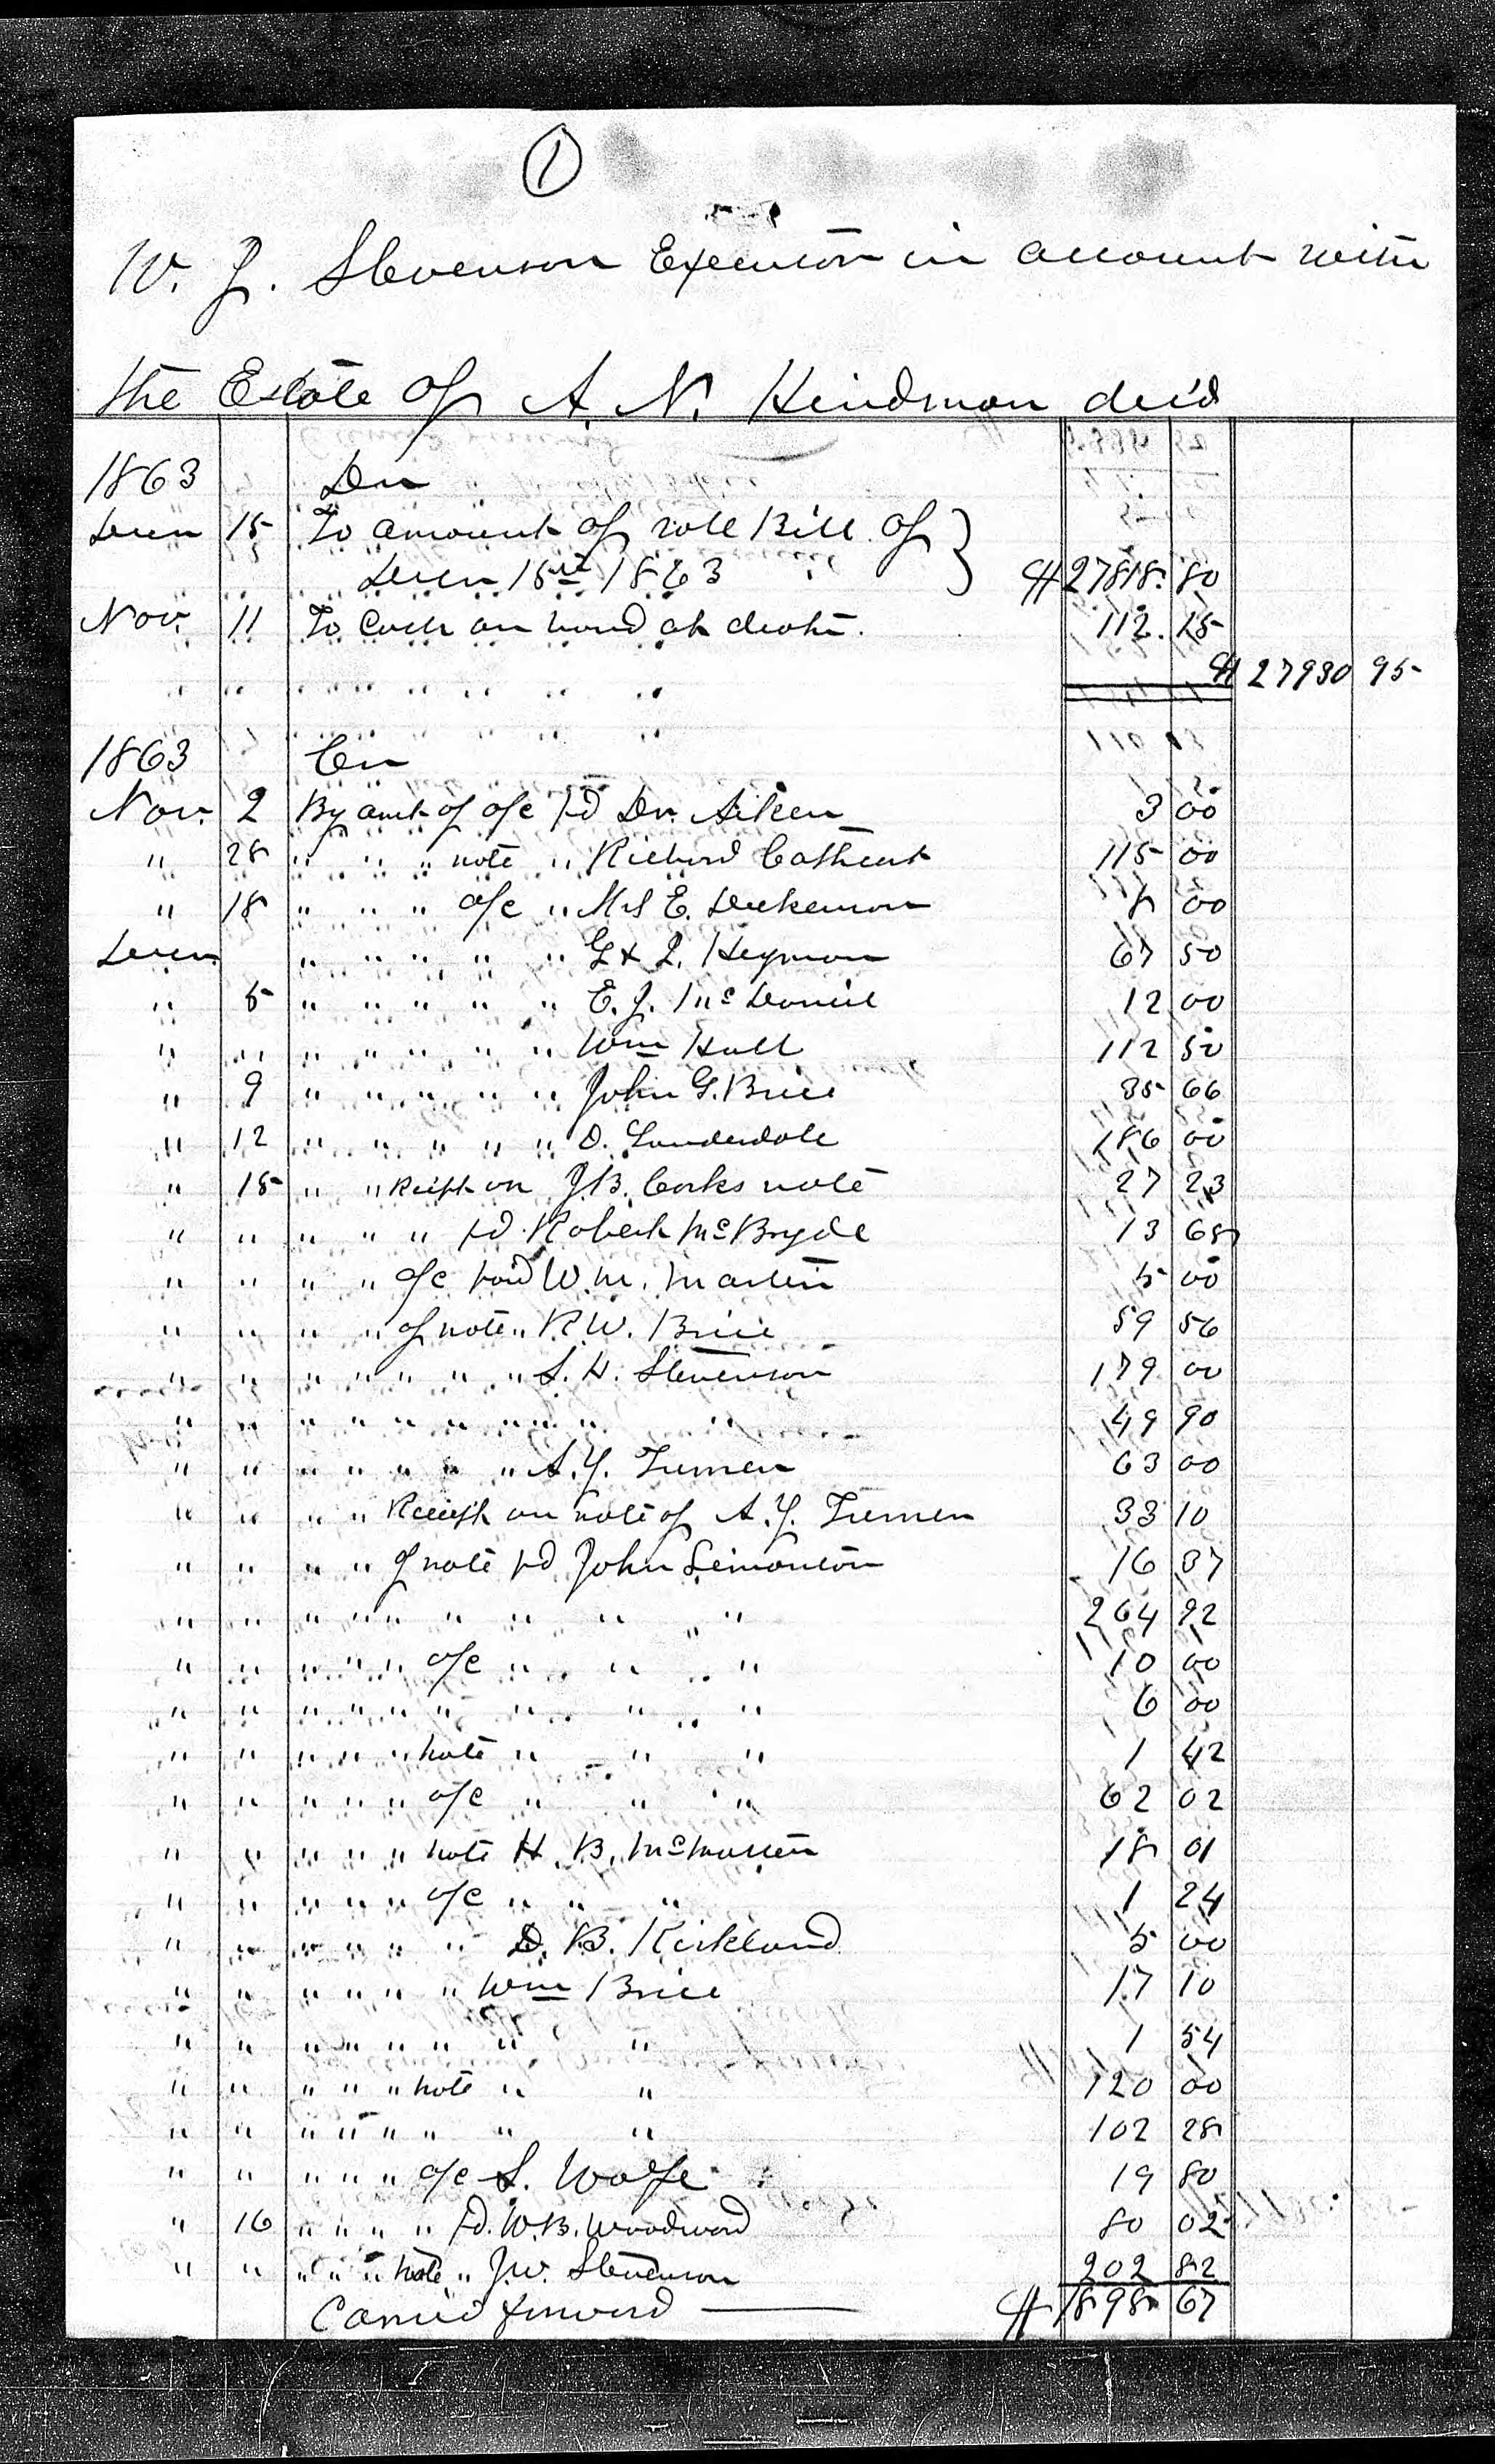 1
W. J. Stevenson Executor in account with
the Estate of A. N. Hindman dec'd
1863 Dr
Decm 15 To amount of sale Bill of
Decm 15th 1863 $ 27818. 80
Nov. 11 To Cash on hand at death. 112. 15
$ 27930 95
1863 Cr
Nov. 2 By amt of a/c pd Dr. Aiken 3 00
" 28 " " " note " Richard Cathcart 115 00
" 18 " " " a/c " Mrs E. Dickerson 8 00
Decm " " " " " G & J. Heyman 67 50
" 5 " " " " " E. J. McDaniel 12 00
" " " " " " " Wm Hall 112 50
" 9 " " " " " John G. Brice 35 66
" 12 " " " " " D. Lauderdale 186 00
" 15 " " Receipt on J. B. Corks note 27 23
" " " " " pd Robert McBryde 13 68
" " " " a/c paid W. M. Martin 5 00
" " " " of note " R. W. Brice 59 56
" " " " " " " S. H. Stevenson 179 00
" " " " " " " " " 49 90
" " " " " " " A. Y. Turner 63 00
" " " " Receipt on note of A. Y. Turner 33 10
" " " " of note pd John Simonton 16 37
" " " " " " " " " 264 92
" " " " " a/c " " " 10 00
" " " " " " " " " 6 00
" " " " " note " " " 1 42
" " " " " a/c " " " 62 02
" " " " " note H. B. McMaster 18 01
" " " " " a/c " " " 1 24
" " " " " " D. B. Kirkland 5 00
" " " " " " Wm Brice 17 10
" " " " " " " " 1 54
" " " " " note " " 120 00
" " " " " " " " 102 28
" " " " " a/c S. Wolfe 19 80
" 16 " " " " pd. W. B. Woodward 80 02
" " " " " note " J. W. Stevenson 202 82
Carried forward $ 1898 67